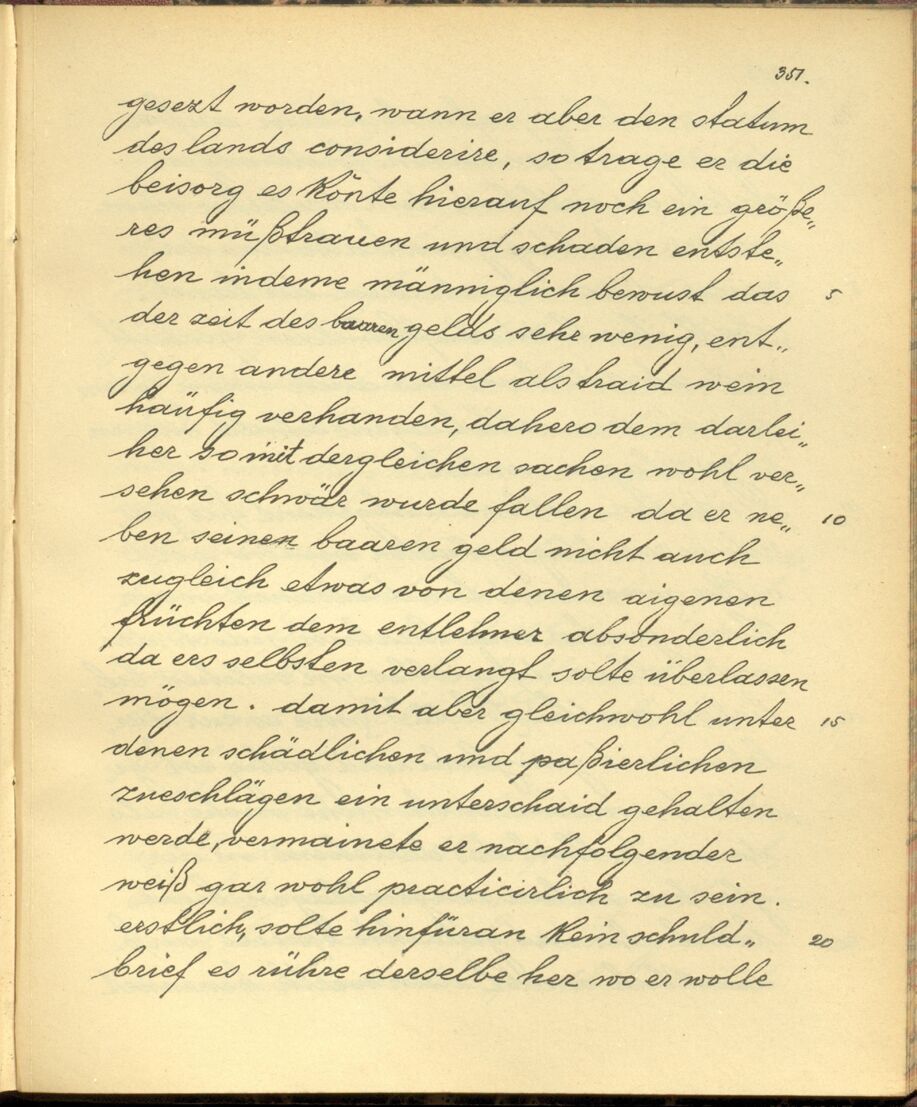 351.
gesezt worden, wann er aber den statum
des lands considerire, so trage er die
beisorg es könte hierauf noch ein größe„
res müßtrauen und schaden entste„
hen indeme männiglich bewust das 5
der zeit des baaren gelds sehr wenig, ent„
gegen andere mittel als traid wein
haüfig verhanden, dahero dem darlei„
her so mit dergleichen sachen wohl ver„
sehen schwär wurde fallen da er ne„ 10
ben seinen baaren geld nicht auch
zugleich etwas von denen aigenen
früchten dem entlehner absonderlich
da ers selbsten verlangt solte überlassen
mögen. damit aber gleichwohl unter 15
denen schädlichen und paßierlichen
zueschlägen ein unterschaid gehalten
werde, vermainete er nachfolgender
weiß gar wohl practicirlich zu sein.
erstlich, solte hinfüran kein schuld„ 20
brief es rühre derselbe her wo er wolle